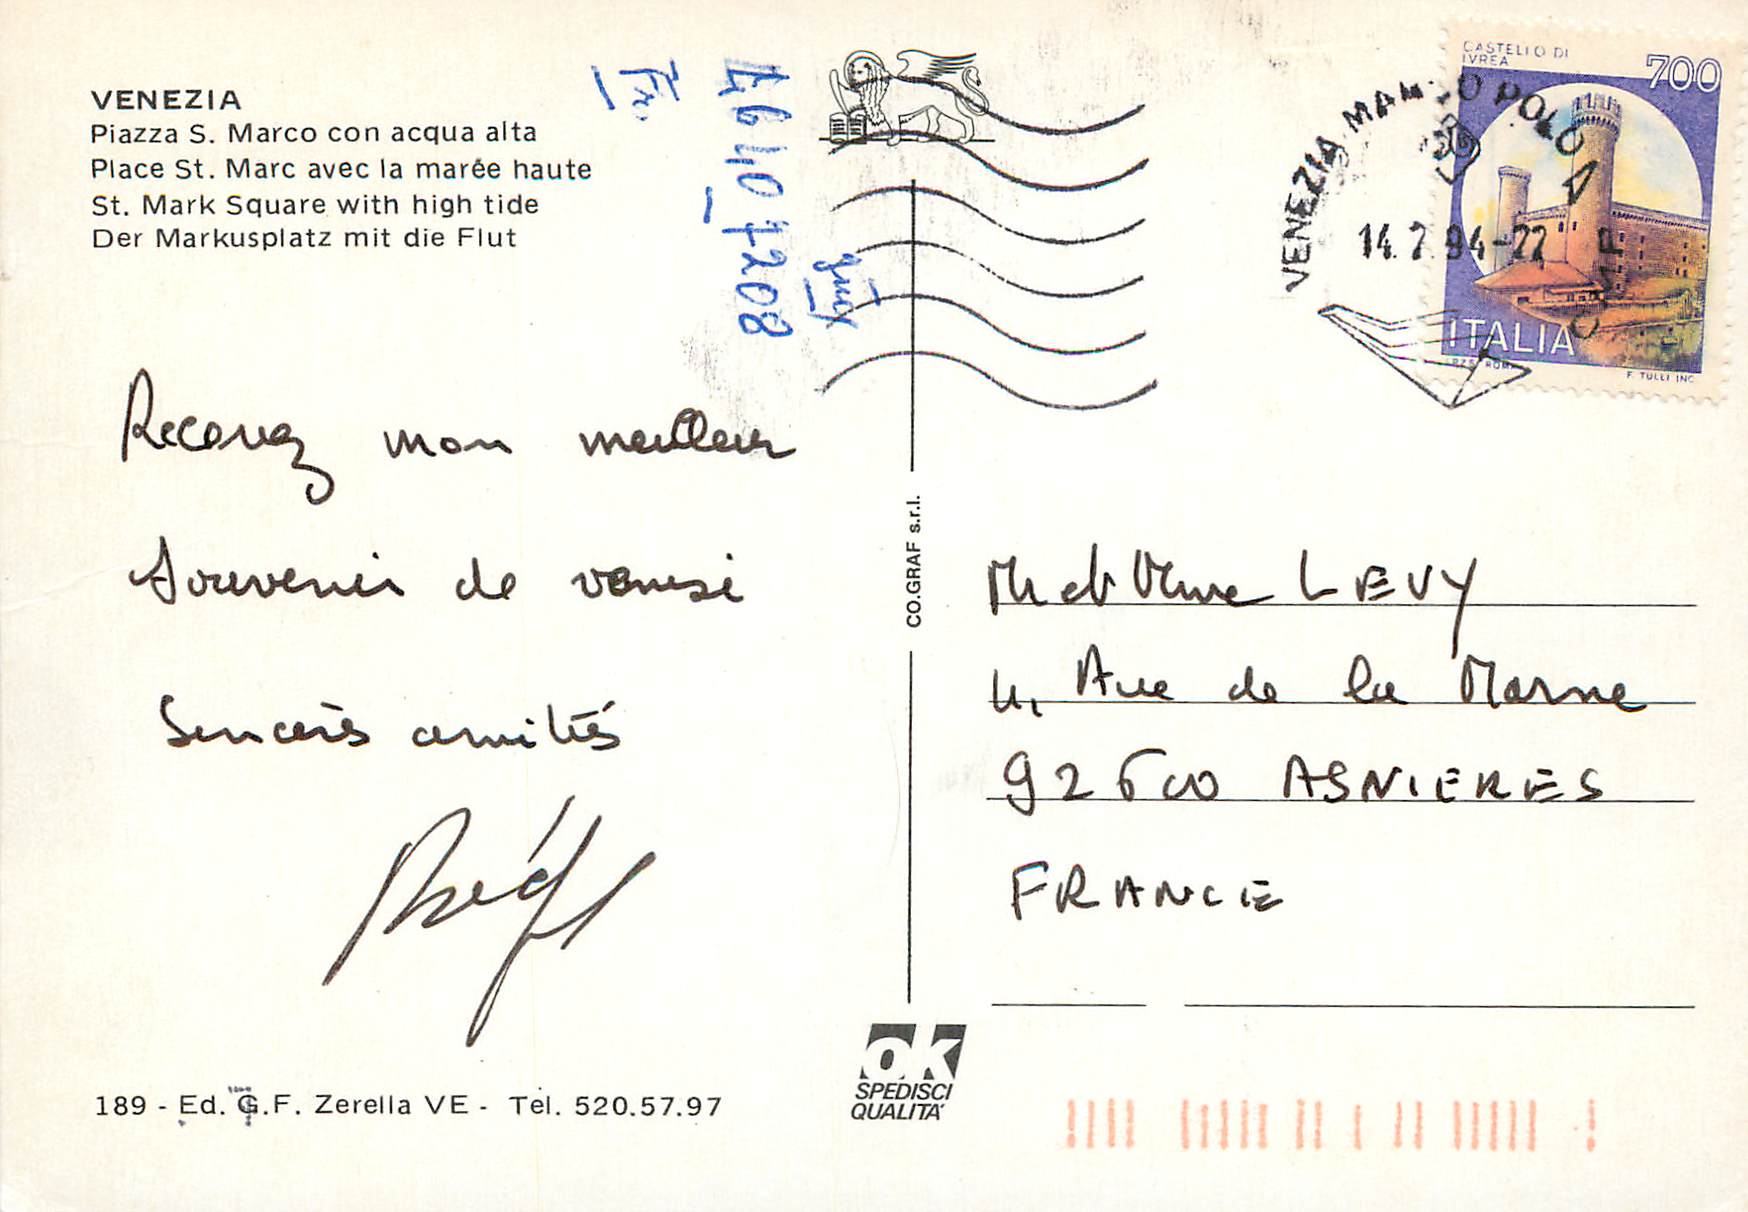 VENEZIA
Piazza S. Marco con acqua alta
Place St. Marc avec la marée haute
St. Mark Square with high tide
Der Markusplatz mit die Flut
Recevez mon meilleur
Souvenir de venise
Sincères amitiés
189 - Ed. G.F. Zerella VE - Tel. 520.57.97
CO.GRAF s.r.l.
OK
SPEDISCI
QUALITA'
CASTELLO DI
IVREA
700
ITALIA
F. TULLI INC.
VENEZIA MARCO POLO A
CMP
14.7.94-22
M et Mme LEVY
4, Aue de la Marne
92600 ASNIERES
FRANCE